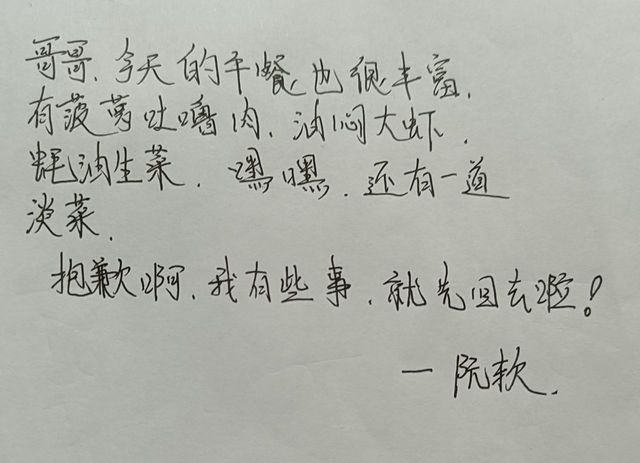 哥哥、今天的午餐也很丰富,
有菠萝咕噜肉、油闷大虾,
蚝油生菜. 嘿嘿. 还有一道
淡菜.
抱歉啊、我有些事、就先回去啦!
— 阮软.